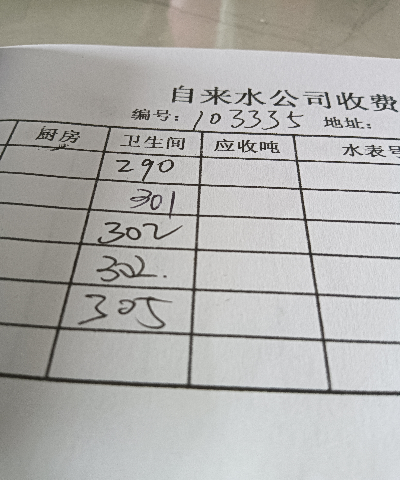 自来水公司收费
编号: 103335 地址:
厨房 卫生间 应收吨 水表号
290
301
302
302.
305